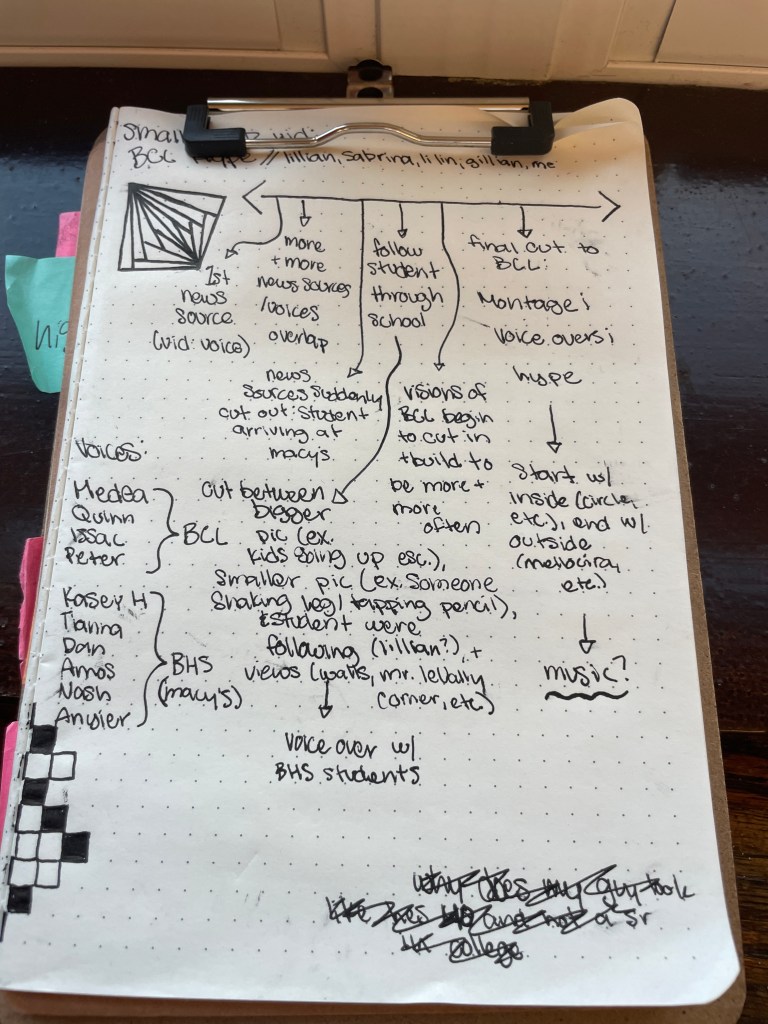 small
vid:
BCL Hype // lillian, Sabrina, lilin, gillian, me
1st
news
source
(vid: voice)
more
+ more
news sources
/voices
overlap
news
sources suddenly
cut out: student
arriving at
macy's
follow
student
through
school
visions of
BCL begin
to cut in
+ build to
be more +
more
often
final cut to
BCL:
Montage;
voice overs;
hype
start w/
inside (circle,
etc.), end w/
outside
etc.)
music?
cut between
bigger
pic (ex.
kids going up esc.),
smaller pic (ex. someone
shaking leg/tapping pencil),
student were
following (lillian?), +
views (walls, mr. levally
corner, etc.)
voice over w/
BHS students
Voices:
Medea
Quinn
Issac
Peter
BCL
Kasey H
Tianna
Dan
Amos
Nash
BHS
(macy's)